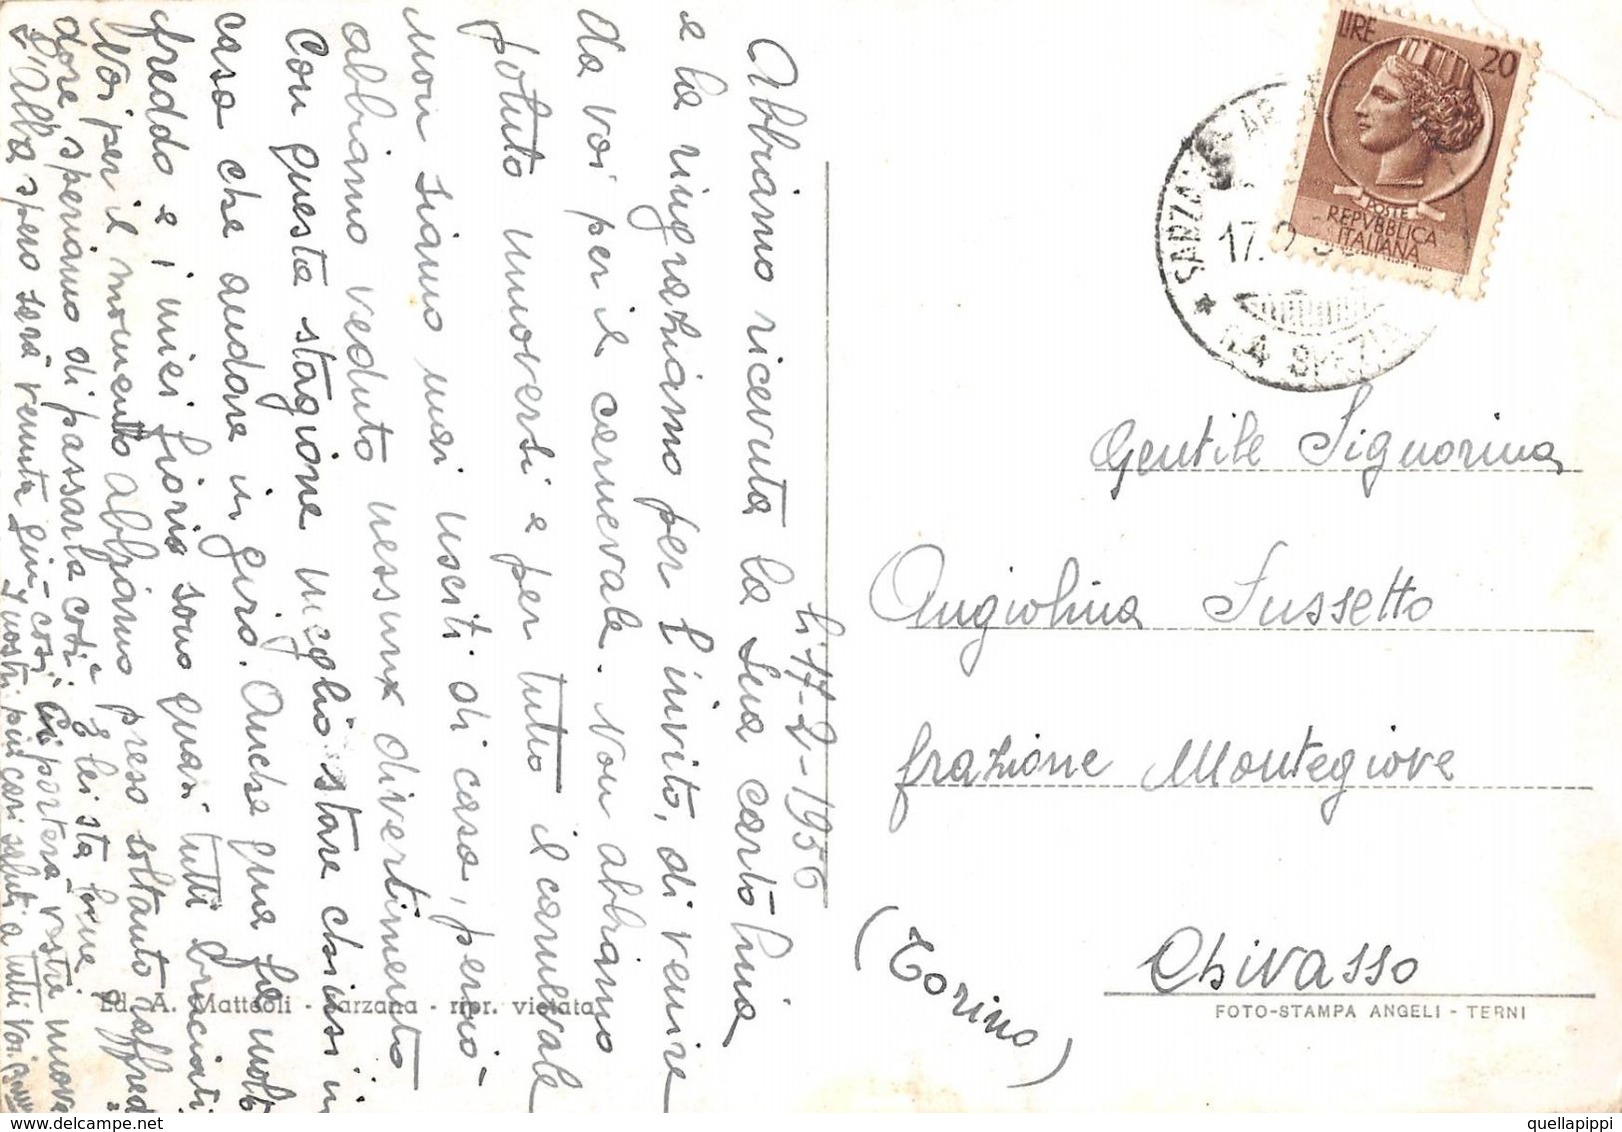 li 17-2-1956
Abbiamo ricevuta la Sua cartolina
e la ringraziamo per l'invito, di venire
da voi per il carnevale. Non abbiamo
potuto muoversi e per tutto il carnevale
non siamo mai usciti di casa, perciò
abbiamo veduto nessunx divertimento
Con questa stagione meglio stare chiusi in
casa che andare in giro. Anche qua fa molto
freddo e i miei fiori sono quasi tutti bruciati
Noi per il momento abbiamo preso soltanto raffred-
dore speriamo di passarla così. E lei sta bene
L'Alba spero sarà venuta giù così ci porterà vostra nuova
I nostri più cari saluti a tutti voi.
Ed. A. Matteoli - Sarzana - ripr. vietata
LIRE 20
POSTE
REPVBBLICA
ITALIANA
SARZANA
17.2.56
SPEZIA
Gentile Signorina
Angiolina Fussetto
frazione Montegiove
Chivasso
(Torino)
FOTO-STAMPA ANGELI - TERNI
quellapippi